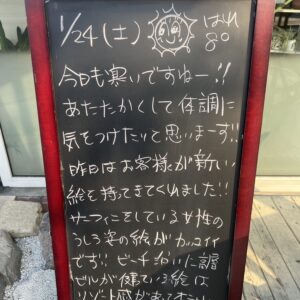 1/24(土) はれ
8°
今日も寒いですねー!!
あたたかくして体調に
気をつけたいと思いまーす!!
昨日はお客様が新しい
絵を持ってきてくれました!!
サーフィンをしている女性の
うしろ姿の絵がカッコイイ
です!! ビーチ沿いに高層
ビルが建ている絵は
リゾート感があって